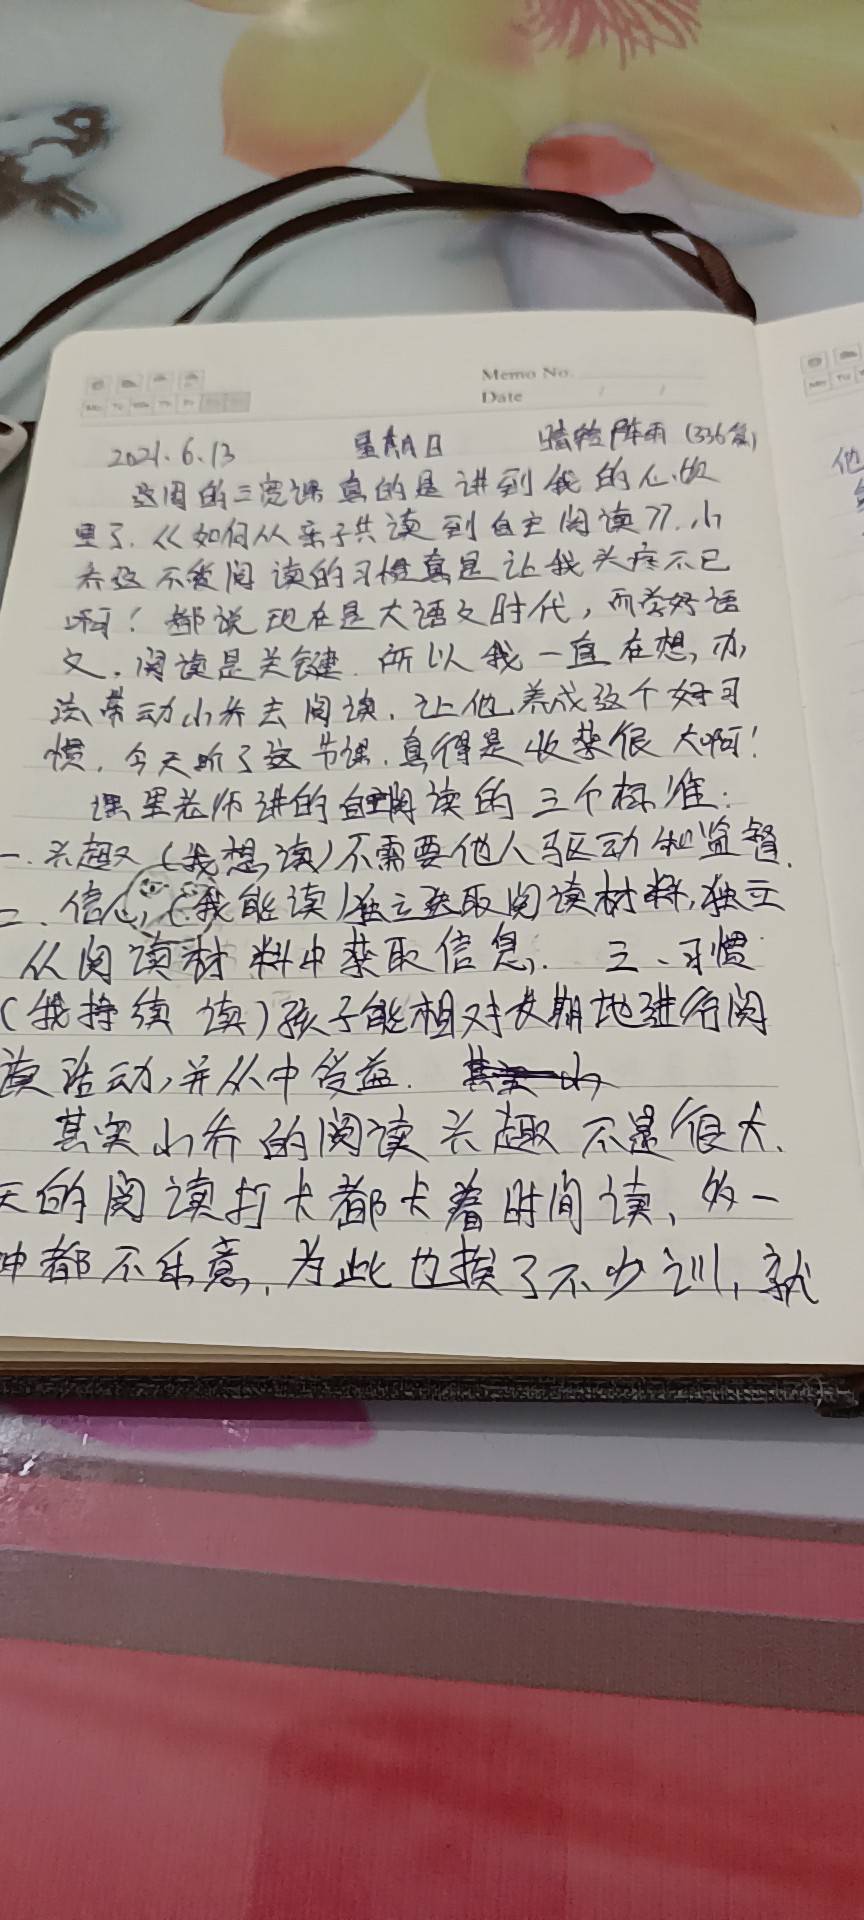 Memo No.
Date
2021.6.13 星期日 晴转阵雨 (336篇)
这周的三宽课真的是讲到我的心坎
里了.《如何从亲子共读到自主阅读》.小
乔这不爱阅读的习惯真是让我头疼不已
啊！都说现在是大语文时代，而学好语
文.阅读是关键.所以我一直在想办
法带动小乔去阅读.让他养成这个好习
惯.今天听了这节课.真得是收获很大啊！
课里老师讲的自主阅读的三个标准：
一.兴趣(我想读)不需要他人驱动和监督.
二.信心,(我能读)独立获取阅读材料,独立
从阅读材料中获取信息. 三、习惯
(我持续读)孩子能相对长期地进行阅
读活动,并从中受益. 其实小
其实小乔的阅读兴趣不是很大.
天的阅读打卡都卡着时间读、多一
钟都不乐意.为此也挨了不少训,就
他